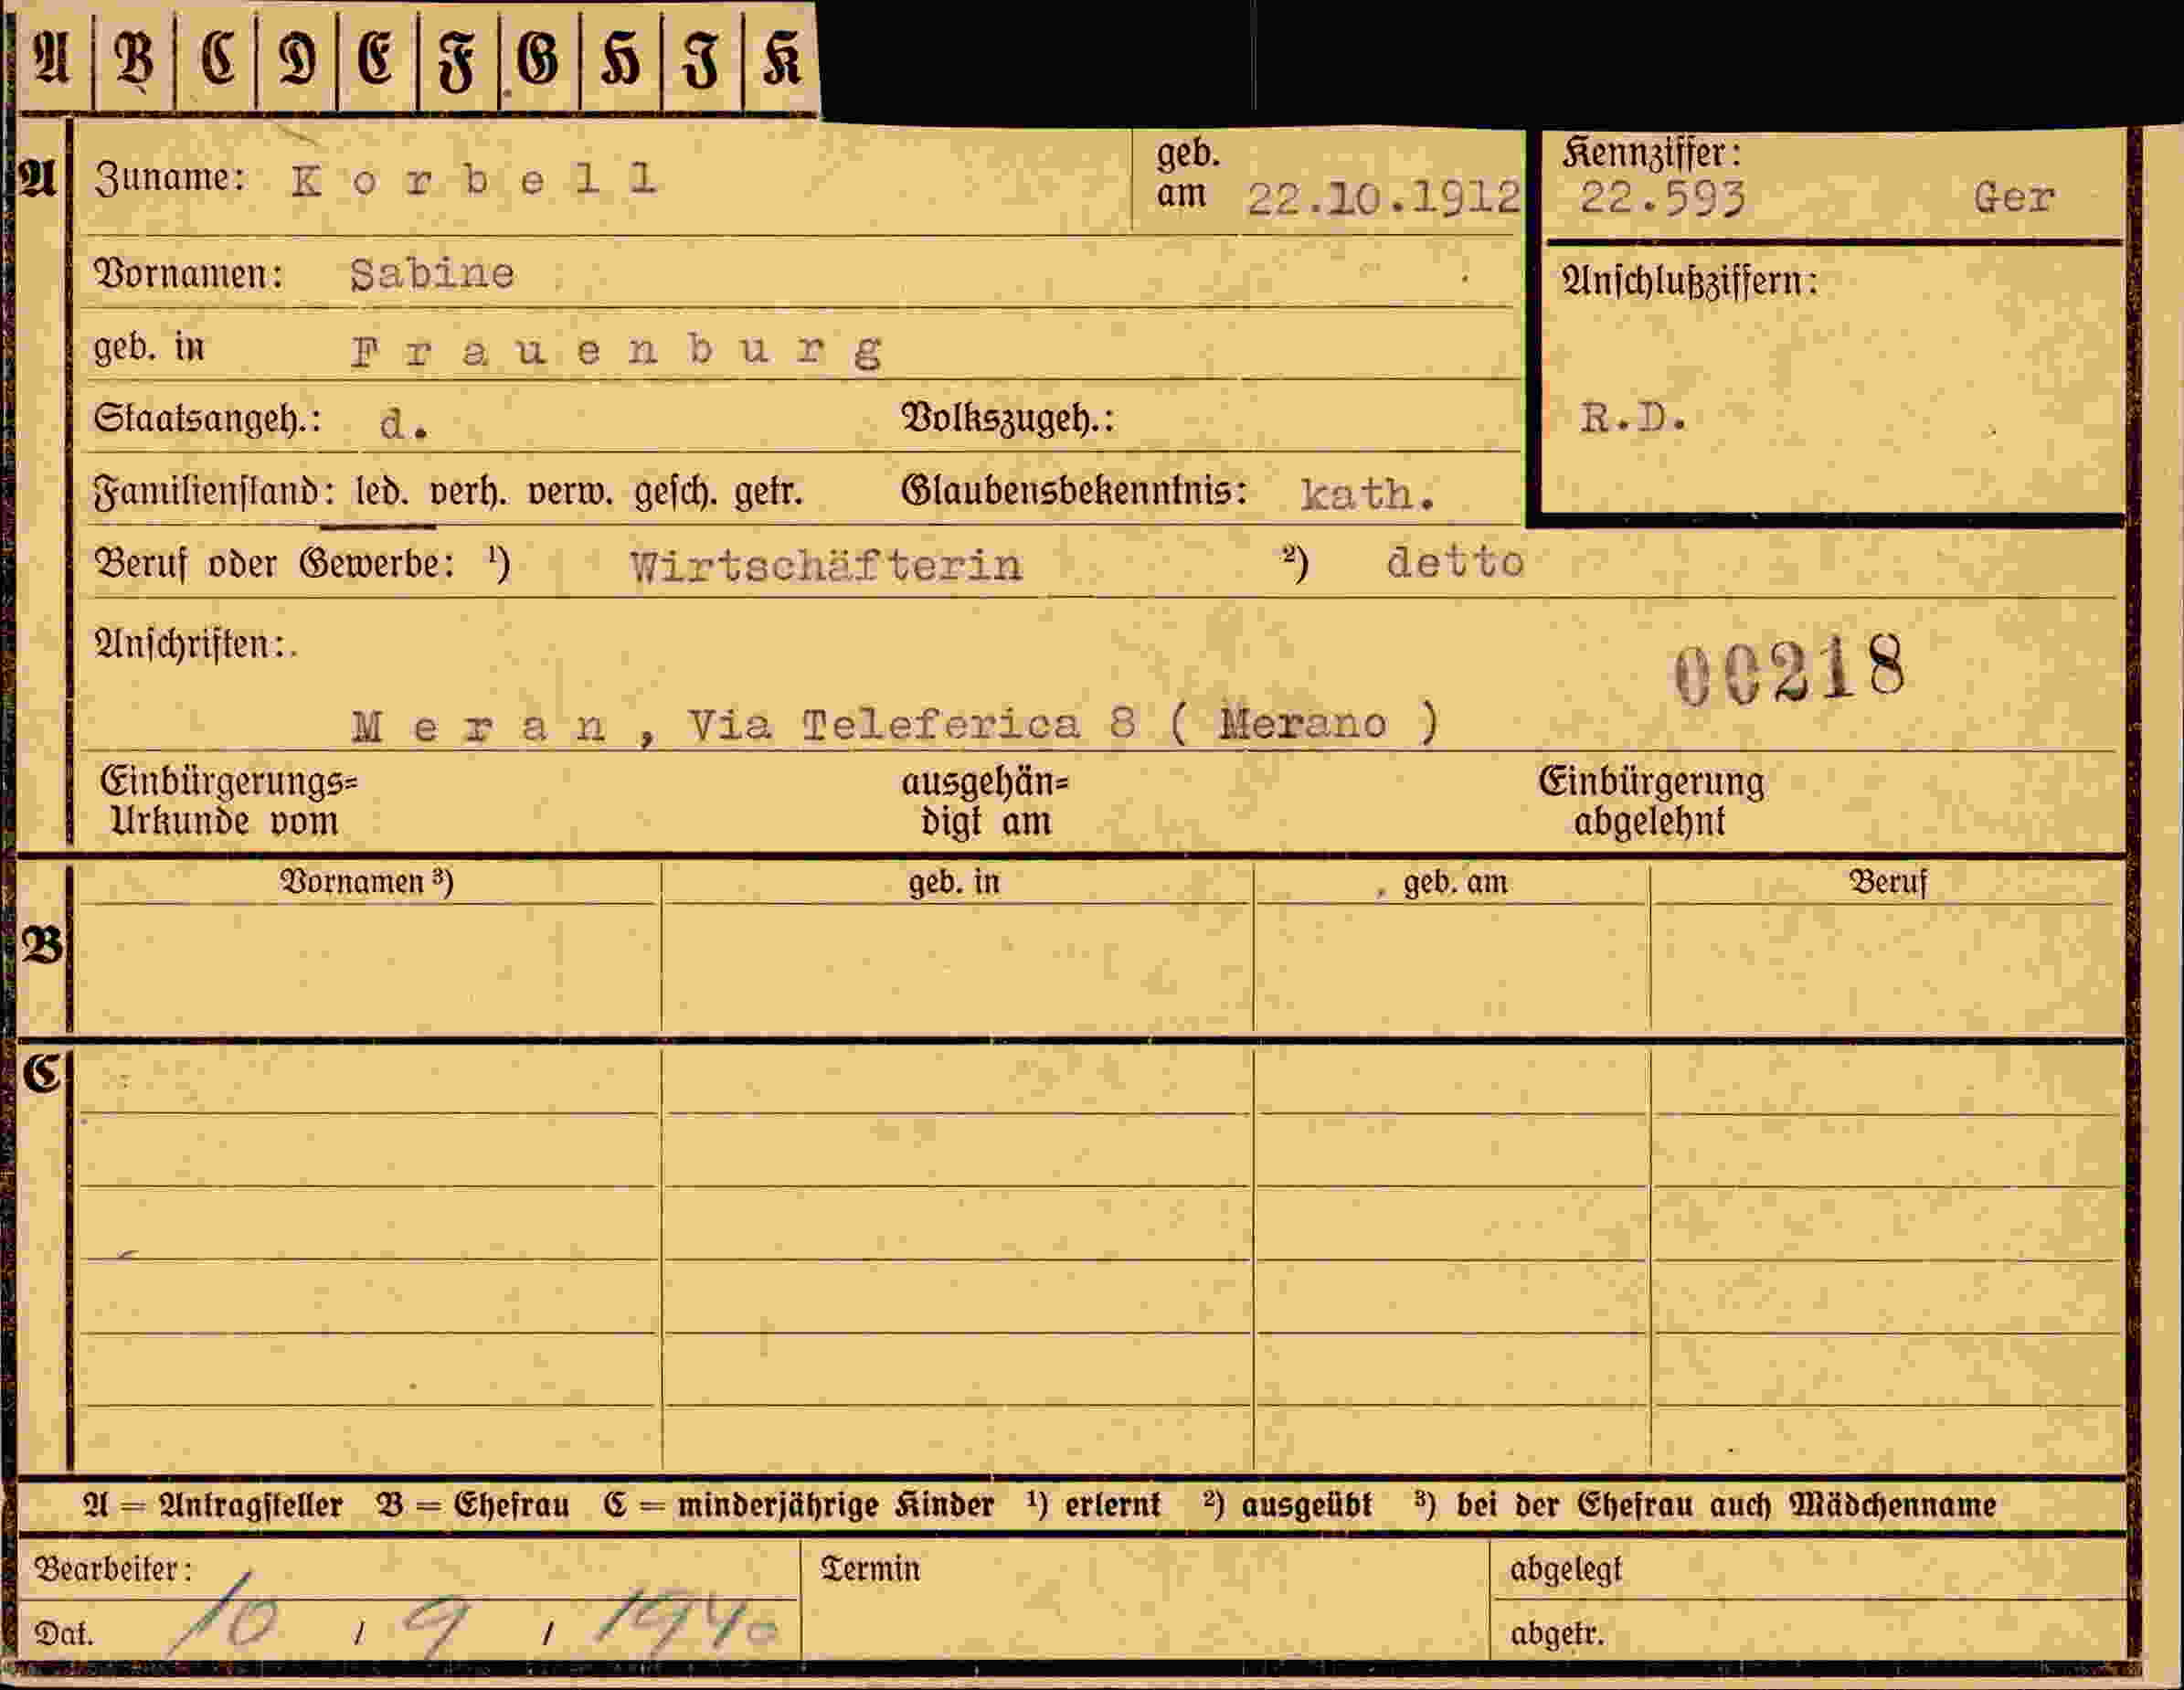 A B C D E F G H I K
A Zuname: Korbell geb. am 22.10.1912 Kennziffer: 22.593 Ger
Vornamen: Sabine Anschlußziffern:
geb. in Frauenburg
Staatsangeh.: d. Volkszugeh.: R.D.
Familienstand: led. verh. verw. gesch. getr. Glaubensbekenntnis: kath.
Beruf oder Gewerbe: ¹) Wirtschäfterin ²) detto
Anschriften: 00218
Meran, Via Teleferica 8 ( Merano )
Einbürgerungs= ausgehän= Einbürgerung
Urkunde vom digt am abgelehnt
Vornamen ³) geb. in geb. am Beruf
B
C
A = Antragsteller B = Ehefrau C = minderjährige Kinder ¹) erlernt ²) ausgeübt ³) bei der Ehefrau auch Mädchenname
Bearbeiter: Termin abgelegt
Dat. 10 / 9 / 1940 abgetr.